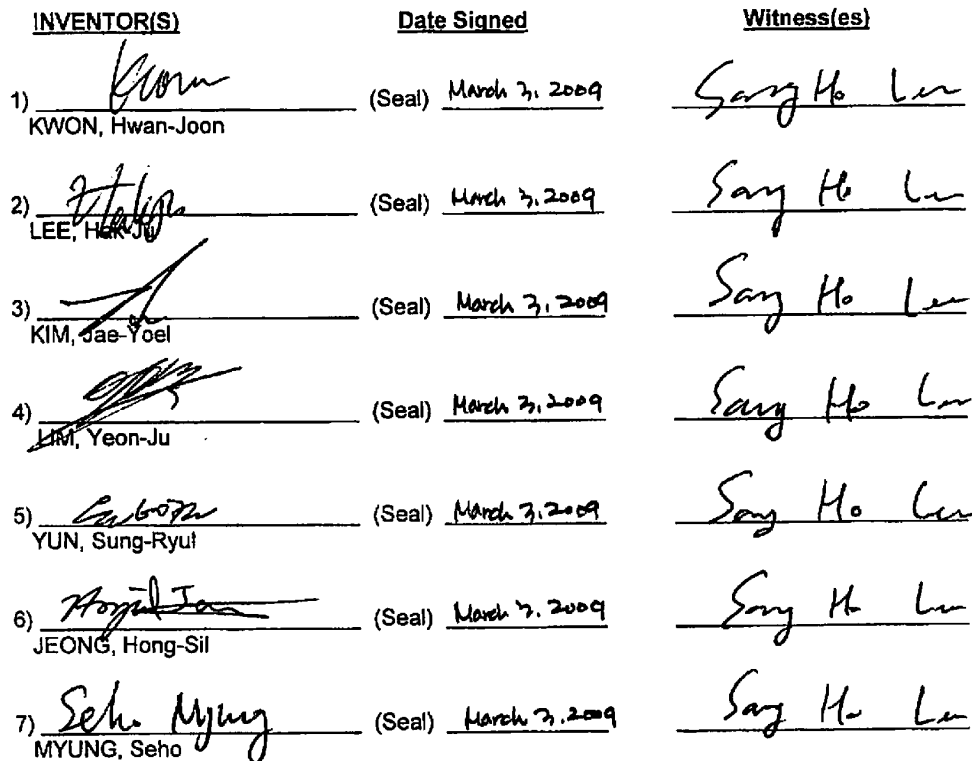 INVENTOR(S) Date Signed Witness(es)
1) Kwon (Seal) March 3, 2009 Sang Ho Lee
KWON, Hwan-Joon
2) (Seal) March 3, 2009 Sang Ho Lee
LEE, Hak-Ju
3) (Seal) March 3, 2009 Sang Ho Lee
KIM, Jae-Yoel
4) (Seal) March 3, 2009 Sang Ho Lee
LIM, Yeon-Ju
5) (Seal) March 3, 2009 Sang Ho Lee
YUN, Sung-Ryul
6) (Seal) March 3, 2009 Sang Ho Lee
JEONG, Hong-Sil
7) Seho Myung (Seal) March 3, 2009 Sang Ho Lee
MYUNG, Seho